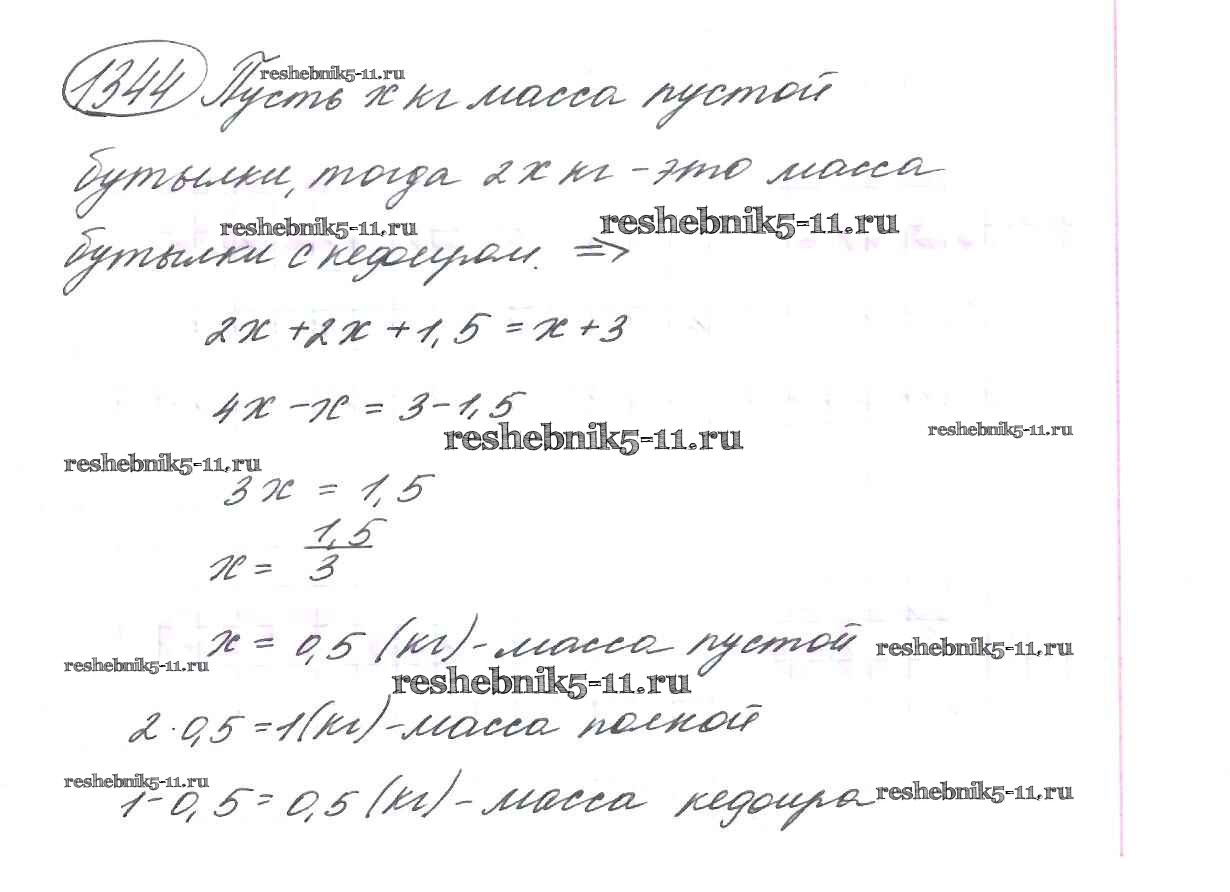 1344 Пусть x кг масса пустой
reshebnik5-11.ru
бутылки, тогда 2x кг - это масса
reshebnik5-11.ru
reshebnik5-11.ru
бутылки с кефиром. =>
2x + 2x + 1,5 = x + 3
4x - x = 3 - 1,5
reshebnik5-11.ru
reshebnik5-11.ru
reshebnik5-11.ru
3x = 1,5
x = 1,5/3
x = 0,5 (кг) - масса пустой
reshebnik5-11.ru
reshebnik5-11.ru
reshebnik5-11.ru
2 · 0,5 = 1 (кг) - масса полной
reshebnik5-11.ru
1 - 0,5 = 0,5 (кг) - масса кефира
reshebnik5-11.ru